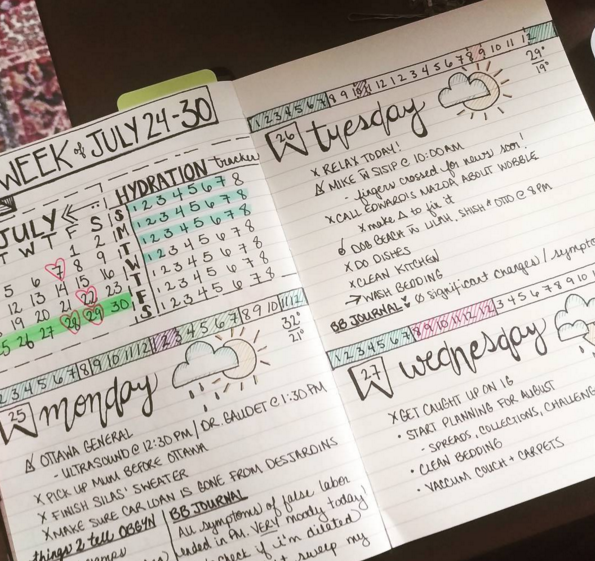 WEEK of JULY 24-30
JULY
T W T F S
1 2
5 6 7 8 9
12 13 14 15 16
19 20 21 22 23
25 26 27 28 29 30
HYDRATION tracker
S 1 2 3 4 5 6 7 8
M 1 2 3 4 5 6 7 8
T 1 2 3 4 5 6 7 8
W 1 2 3 4 5 6 7 8
T 1 2 3 4 5 6 7 8
F 1 2 3 4 5 6 7 8
S 1 2 3 4 5 6 7 8
2 3 4 5 6 7 8 9 10 11 12 1 2 3 4 5 6 7 8 9 10 11 12
25 monday
32°
21°
OTTAWA GENERAL
- ULTRASOUND @ 12:30 PM / DR. GAUDET @ 1:30 PM
X PICK UP MUM BEFORE OTTAWA
X FINISH SILAS' SWEATER
X MAKE SURE CAR LOAN IS GONE FROM DESJARDINS
things 2 tell OBGYN
BB JOURNAL
All symptoms of false labor
ended in PM. VERY moody today!
check if i'm dilated
sweep my
1 2 3 4 5 6 7 8 9 10 11 12 1 2 3 4 5 6 7 8 9 10 11 12
26 tuesday
29°
19°
X RELAX TODAY!
MIKE IN SISIP @ 10:00AM
- fingers crossed for news soon!
X CALL EDWARD'S MAZDA ABOUT WOBBLE
X make Δ to fix it
DOG BEACH W LILAH, SHISH + OTTO @ 8PM
X DO DISHES
X CLEAN KITCHEN
→ WASH BEDDING
BB JOURNAL Ø significant changes / sympto
1 2 3 4 5 6 7 8 9 10 11 12 1 2 3 4 5 6 7 8 9 10 11 12
27 wednesday
X GET CAUGHT UP ON IG
• START PLANNING FOR AUGUST
- SPREADS, COLLECTIONS, CHALLENG
• CLEAN BEDDING
• VACCUM COUCH + CARPETS